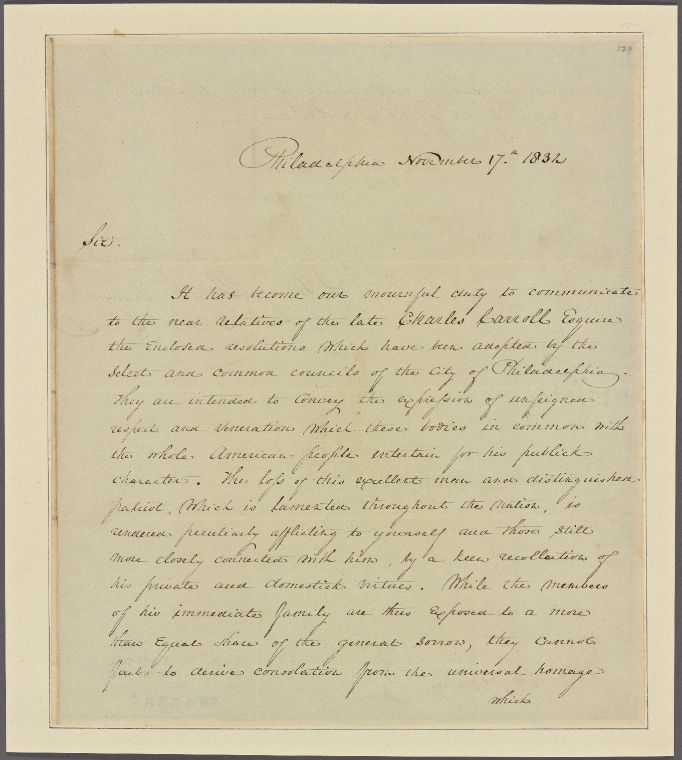 129
Philadelphia November 17.th 1832
Sir.
It has become our mournful duty to communicate
to the near relatives of the late Charles Carroll Esquire
the Enclosed resolutions which have been adopted by the
Select and common councils of the City of Philadelphia.
They are intended to Convey the expression of unfeigned
respect and veneration which these bodies in common with
the whole American people entertain for his publick
character. The loss of this excellent man and distinguished
patriot, which is lamented throughout the nation, is
rendered peculiarly afflicting to yourself and those still
more closely connected with him, by a keen recollection of
his private and domestick virtues. While the members
of his immediate family are thus Exposed to a more
than Equal share of the general sorrow, they Cannot
fail to derive consolation from the universal homage
which